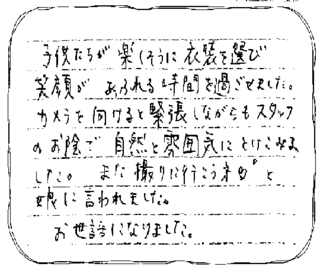 子供たちが楽しそうに衣装を選び
笑顔があふれる時間を過ごせました。
カメラを向けると緊張しながらもスタッフ
のお陰で自然と雰囲気にとけこみま
した。また撮りに行こうネ♡"と
娘に言われました。
お世話になりました。